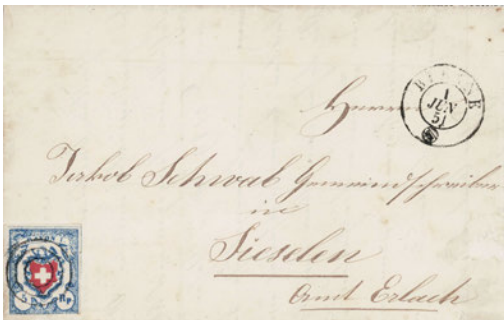 BIENNE
1
JUN
51
Herrn
Jakob Schwab Gemeindschreiber
in
Sieselen
Amt Erlach
5 Rp